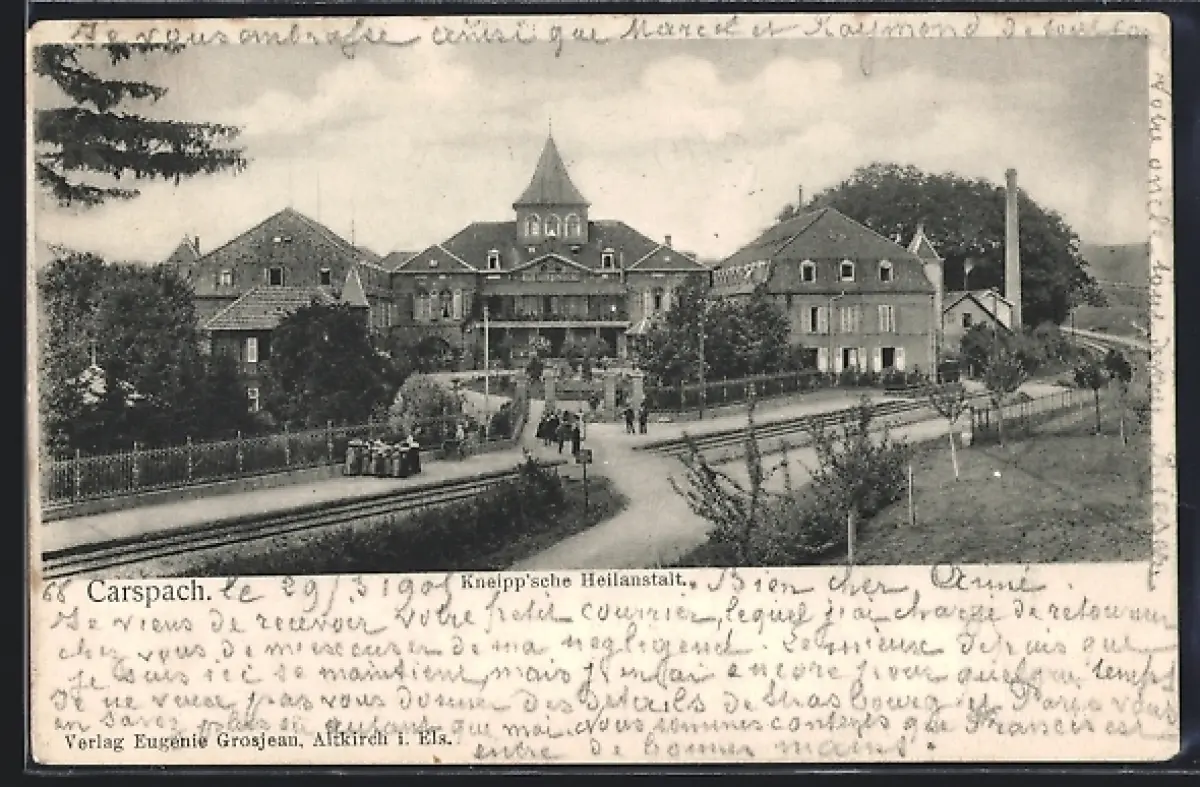 Je vous embrasse ainsi que Marcel et Raymond
66 Carspach. le 29/3 190 Kneipp'sche Heilanstalt. Bien cher Aimé.
Je viens de recevoir votre petit courrier, lequel j'ai chargé de retourner
chez vous de m'excuser de ma negligence. Le mieux depuis que
je suis ici se maintient, mais j'en ai encore pour quelque temps
Je ne veux pas vous donner des details de Strasbourg et Paris vous
en savez plus ou autant que moi. Nous sommes contents que Francis est
Verlag Eugenie Grosjean, Altkirch i. Els.
entre de bonnes mains.
Votre oncle tout devoué